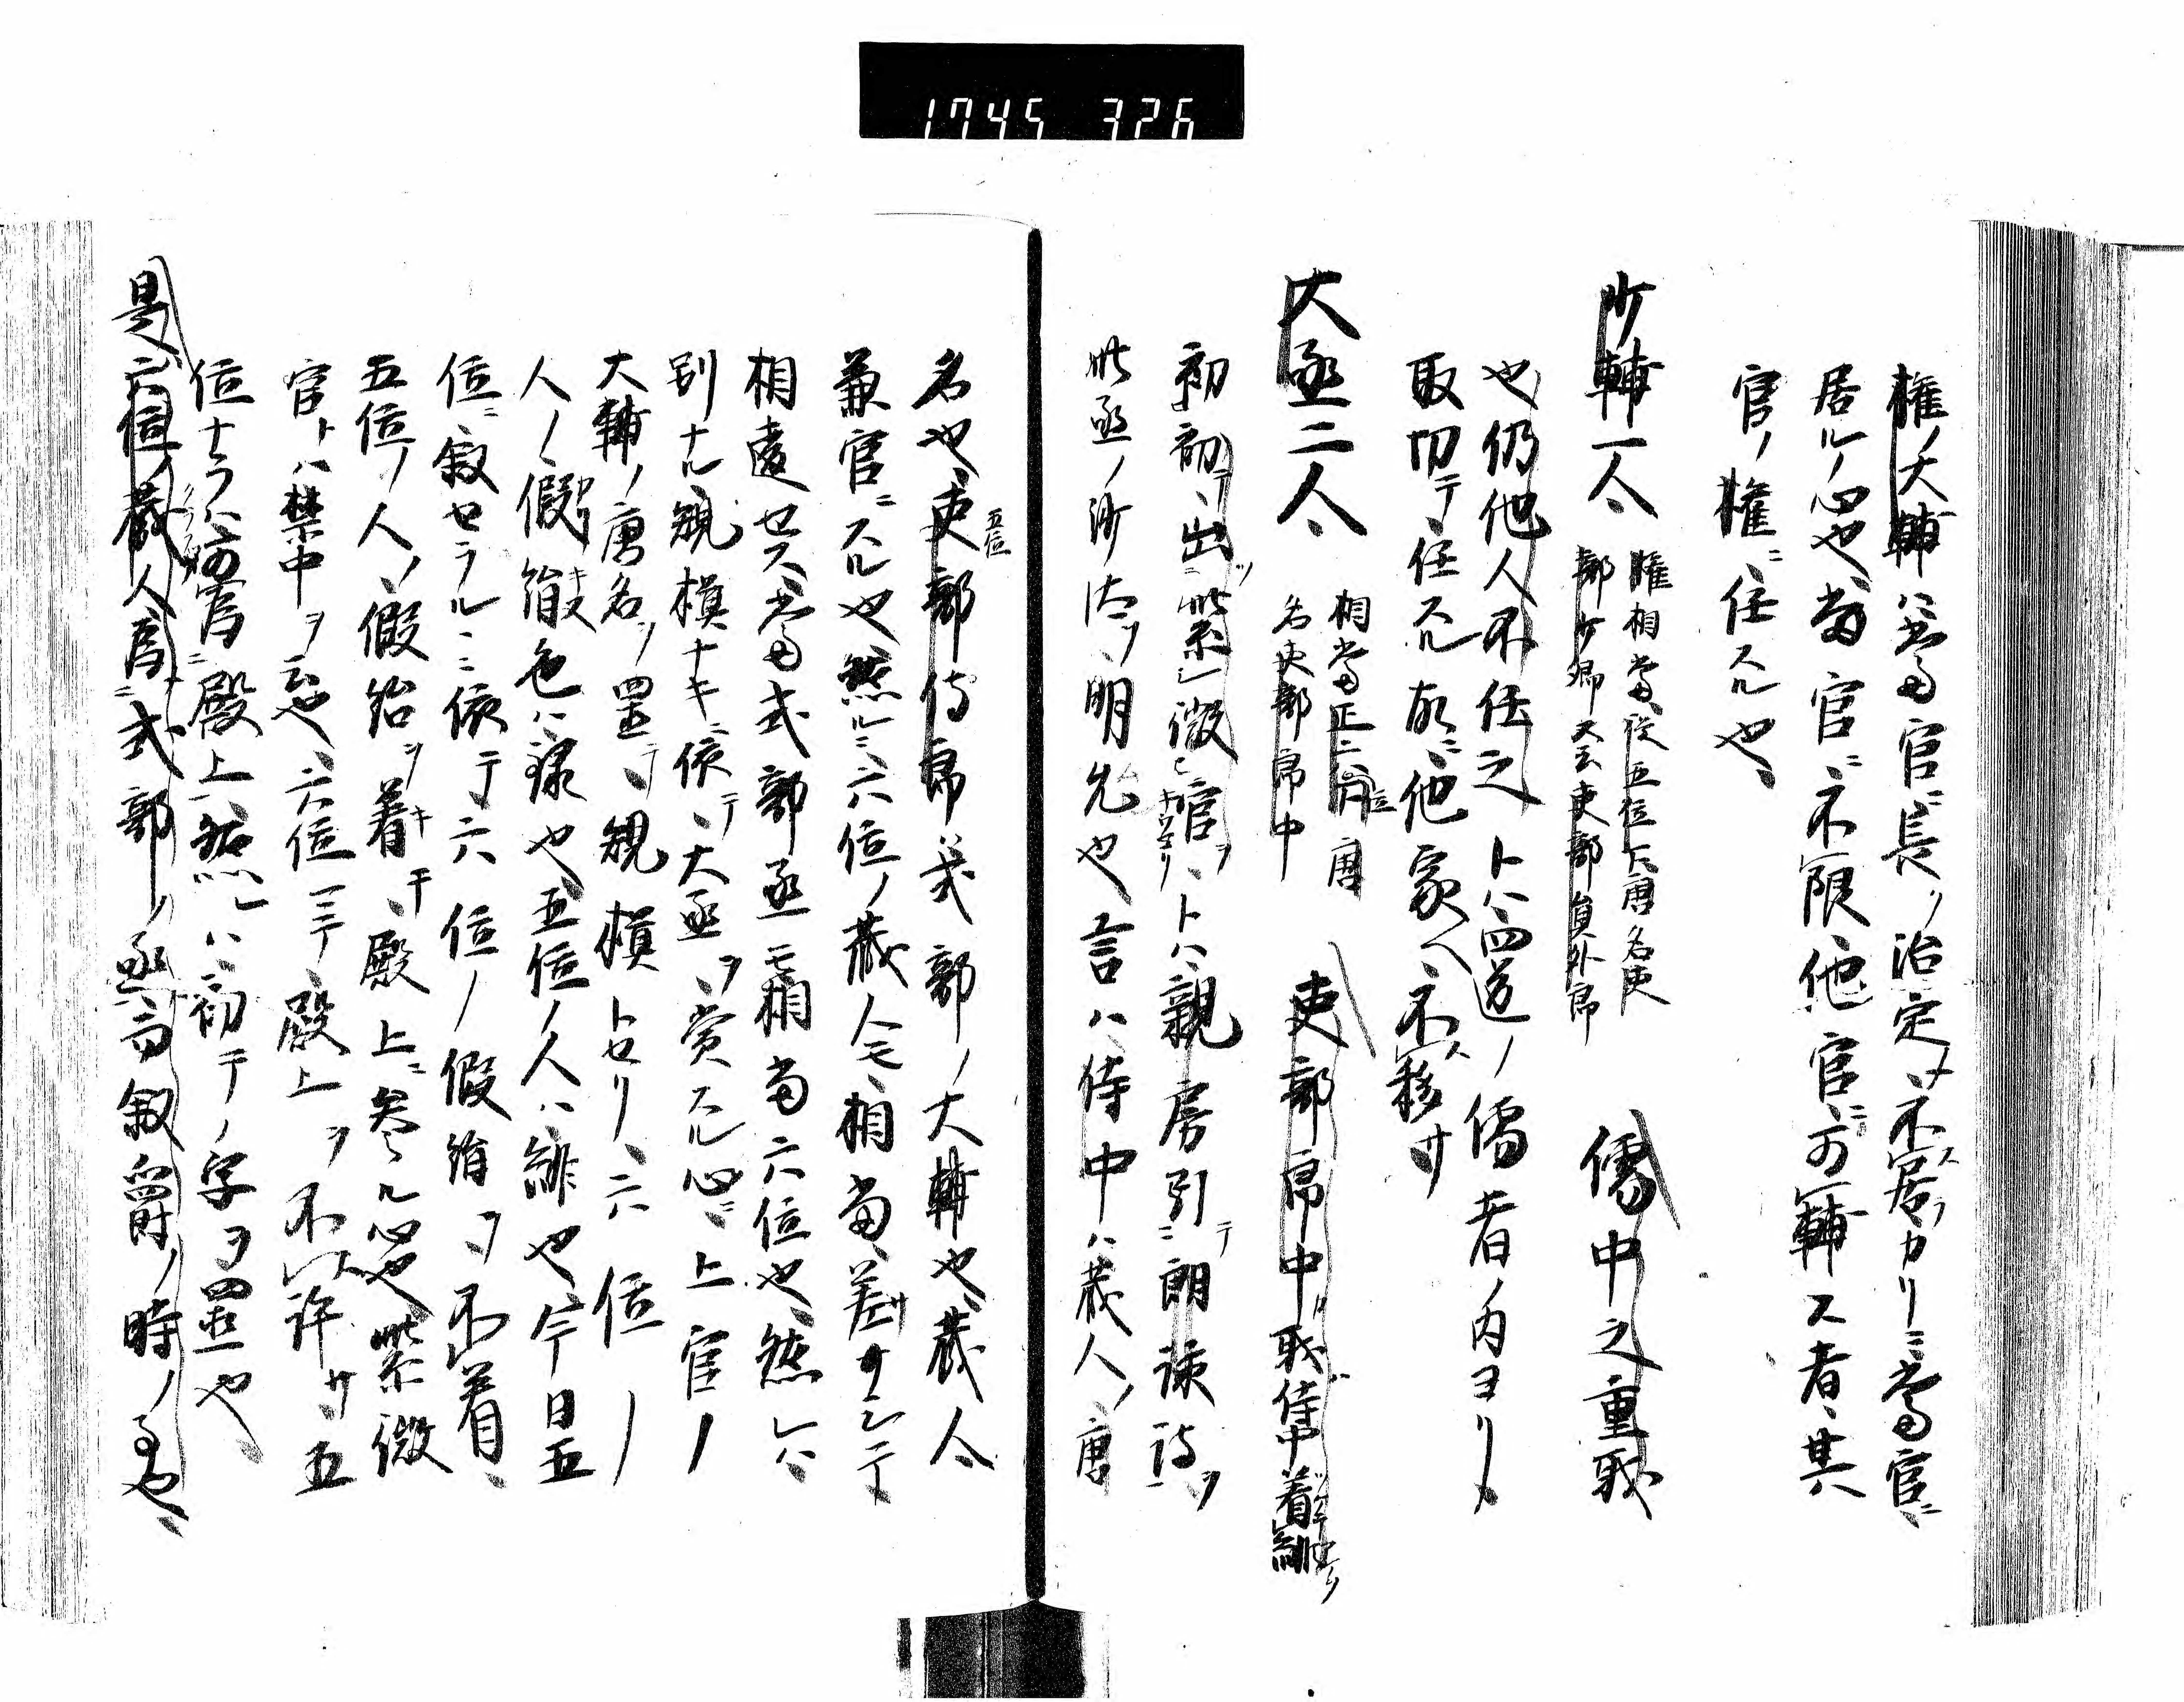 1745 326
権ノ大輔ハ当官ニ長ヲ治定メ不居カリニ当官ニ
居ルノ心也当官ニ不限他官ニ可輔ス者其
官ノ権ニ任スル也
少輔一人 権相当従五位下唐名吏 儒中之重職
部少卿又云吏部員外郎
也仍他人不任之トハ四道ノ儒者ノ内ヨリ
取切テ任スル故ニ他家ヘ不移サ
大丞二人 相当正六位唐 吏部郎中職侍中着緋
名吏部郎中
初初テ出紫微官ヲトハ親房引ニ朗詠詩ヲ
此丞ノ沙汰ヲ明先也言ハ侍中ハ蔵人ノ唐
名也吏部侍郎ハ式部ノ大輔也蔵人
五位
兼官ニスル也然ルニ六位ノ蔵人モ相当差サレテ
相違セス当式部丞モ相当六位也然レハ
別ナル規模ナキニ依テ大丞ヲ賞スル心ニ上官ノ
大輔ノ唐名ヲ置テ規模トセリ六位ノ
人ノ假袍色ハ緑也五位ノ人ハ緋也今日五
位ニ叙セラルニ依テ六位ノ假袍ヲ不着
五位ノ人ノ假袍ヲ着テ殿上ニ参ル心也紫微
官トハ禁中ヲ云也六位ニテ殿上ヲ不許サ五
位ナラハ殿上然レハ初テノ字ヲ置也
是六位ノ蔵人為式部ノ丞叙爵ノ時ノ事也